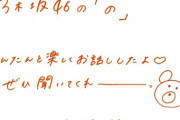 乃木坂46の「の」
んたんと楽しくお話ししたよ♡
ぜひ聞いてくれ――